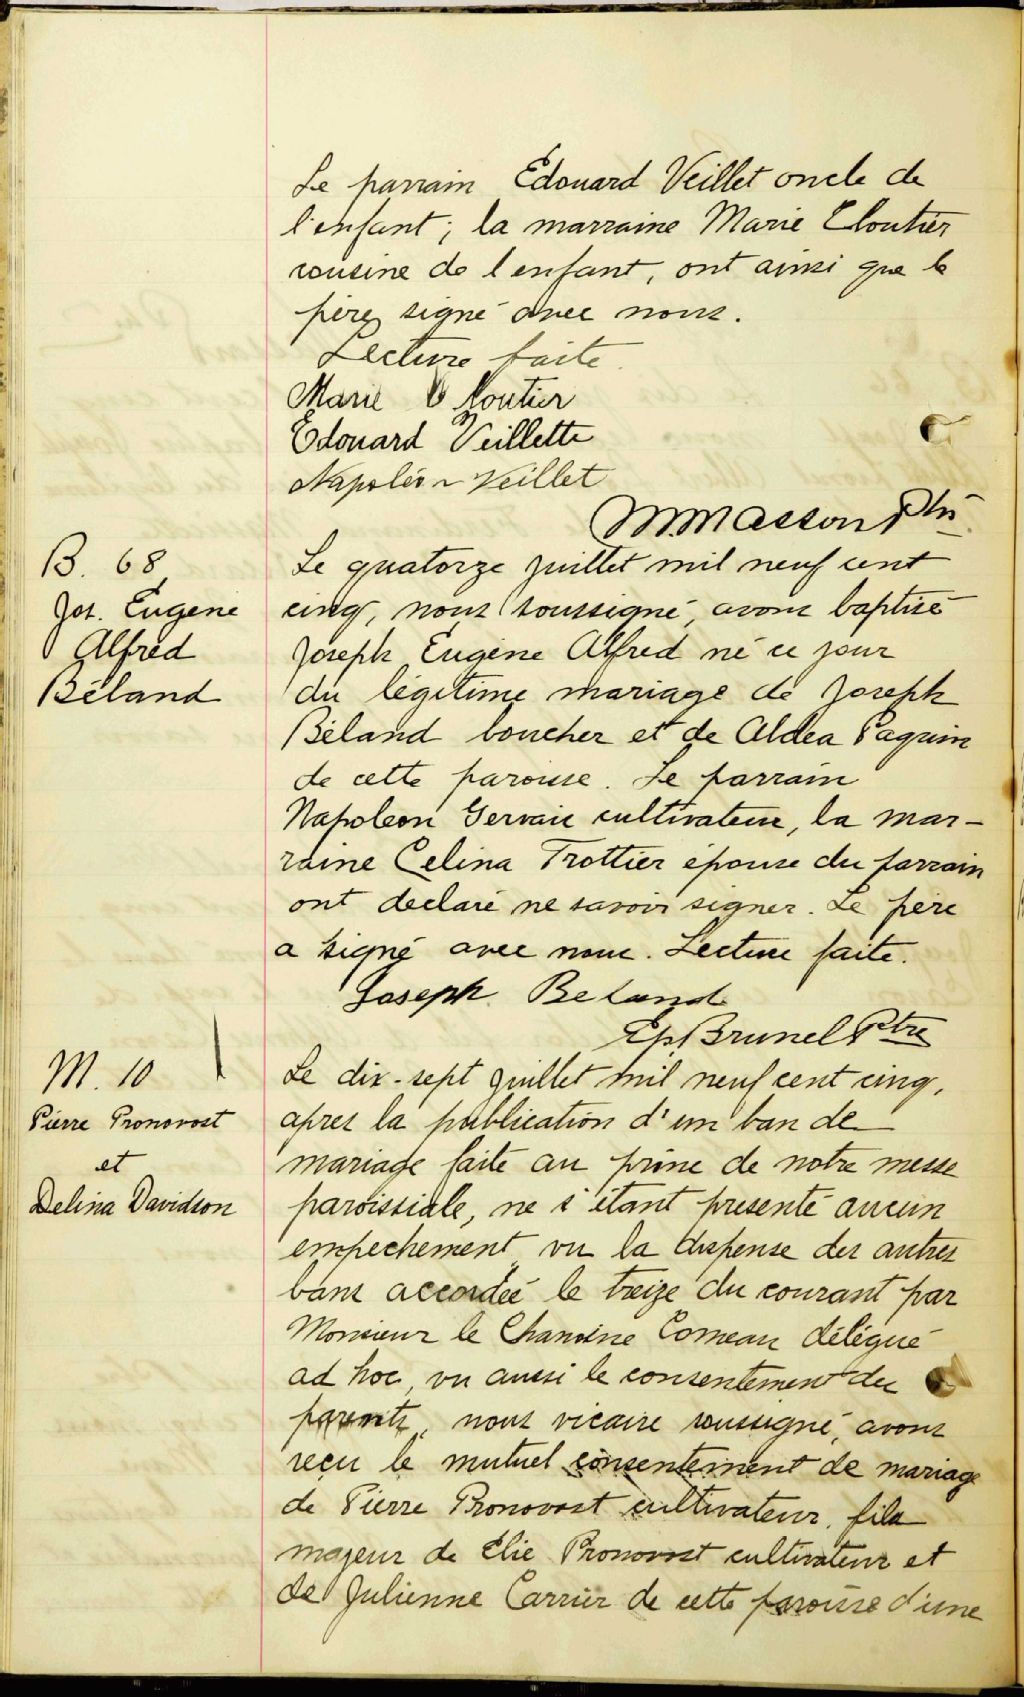 Le parrain Edouard Veillet oncle de
l'enfant; la marraine Marie Cloutier
cousine de l'enfant, ont ainsi que le
père, signé avec nous.
Lecture faite.
Marie Cloutier
Edouard Veillette
Napoléon Veillet
M. Masson Ptre
B. 68
Jos. Eugene
Alfred
Béland
Le quatorze juillet mil neuf cent
cinq, nous soussigné, avons baptisé
Joseph Eugène Alfred né ce jour
du légitime mariage de Joseph
Béland boucher et de Aldea Paquin
de cette paroisse. Le parrain
Napoleon Gervais cultivateur, la mar-
raine Celina Trottier épouse du parrain
ont declaré ne savoir signer. Le père
a signé avec nous. Lecture faite.
Joseph Beland
Ep. Brunel Ptre
M. 10
Pierre Pronovost
et
Delina Davidson
Le dix-sept juillet mil neuf cent cinq,
apres la publication d'un ban de
mariage faite au prône de notre messe
paroissiale, ne s'étant presenté aucun
empechement, vu la dispense des autres
bans accordée le treize du courant par
Monsieur le Chanoine Comeau délégué
ad hoc, vu aussi le consentement des
parents, nous vicaire soussigné, avons
reçu le mutuel consentement de mariage
de Pierre Pronovost cultivateur, fils
majeur de Elie Pronovost cultivateur et
de Julienne Carrier de cette paroisse d'une